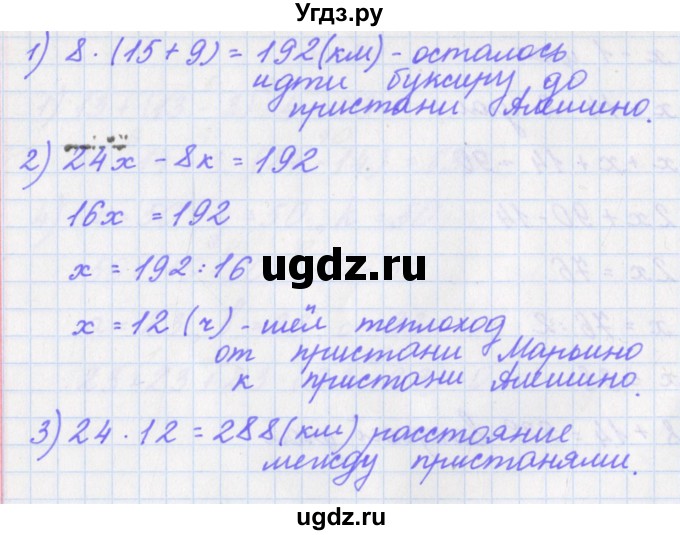 Угдз.ру
1) 8 · (15 + 9) = 192 (км) - осталось
идти буксиру до
пристани Алешино.
2) 24х - 8х = 192
16х = 192
х = 192 : 16
х = 12 (ч) - шёл теплоход
от пристани Марьино
к пристани Алешино.
3) 24 · 12 = 288 (км) расстояние
между пристанями.
ugdz.ru
ugdz.ru